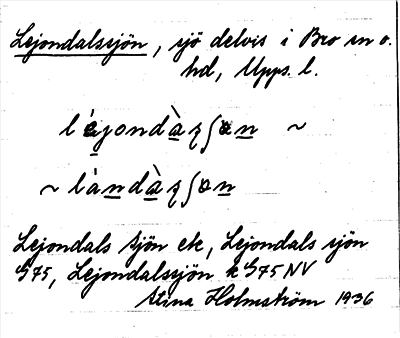 Lejondalssjön, sjö delvis i Bro sn o.
hd, Upps. l.
léjondàʂʃøn ~
~ làndàʂʃøn
Lejondals sjön ek, Lejondals sjön
G75, Lejondalssjön k G75 NV
Stina Holmström 1936